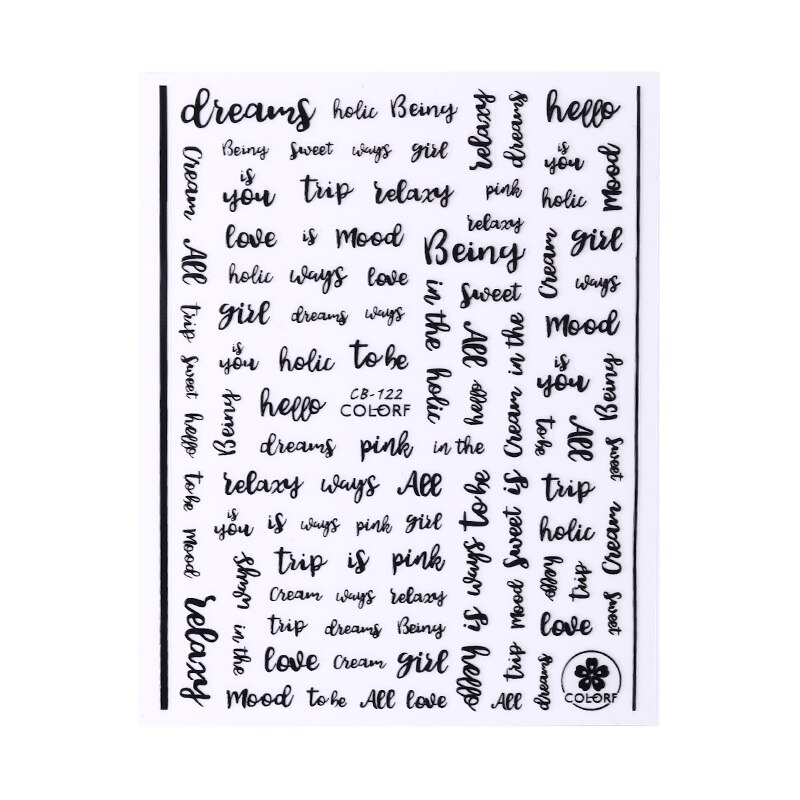 dreams holic Being
relaxy
dreams
hello
Being sweet ways girl
is
you
Mood
Cream
is
you trip relaxy pink
holic
relaxy
love is Mood
Being
Cream
girl
All
holic ways love
in the holic
sweet
ways
girl dreams ways
trip
All
Cream in the
Mood
is
you holic to be
is
you
Being
sweet
hello
CB-122
COLORF
hello
Being
hello
to be
All
sweet
dreams pink in the
to be
relaxy ways All
hello is ways to be
trip Mood sweet is
trip
Cream
is
you is ways pink girl
holic
Mood
trip is pink
always
hello
trip
Cream ways relaxy
sweet
relaxy
trip dreams Being
in the
love
love Cream girl
dreams
Mood to be All love
All
COLORF